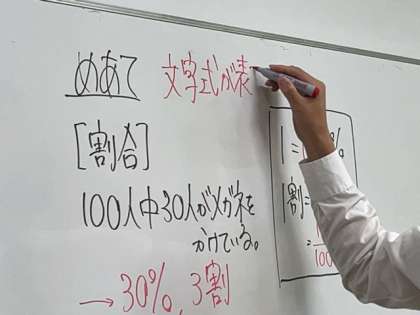 めあて 文字式が表
[割合]
100人中30人がメガネを
かけている。
→30%、3割
1=1 %
1割=
=1
100